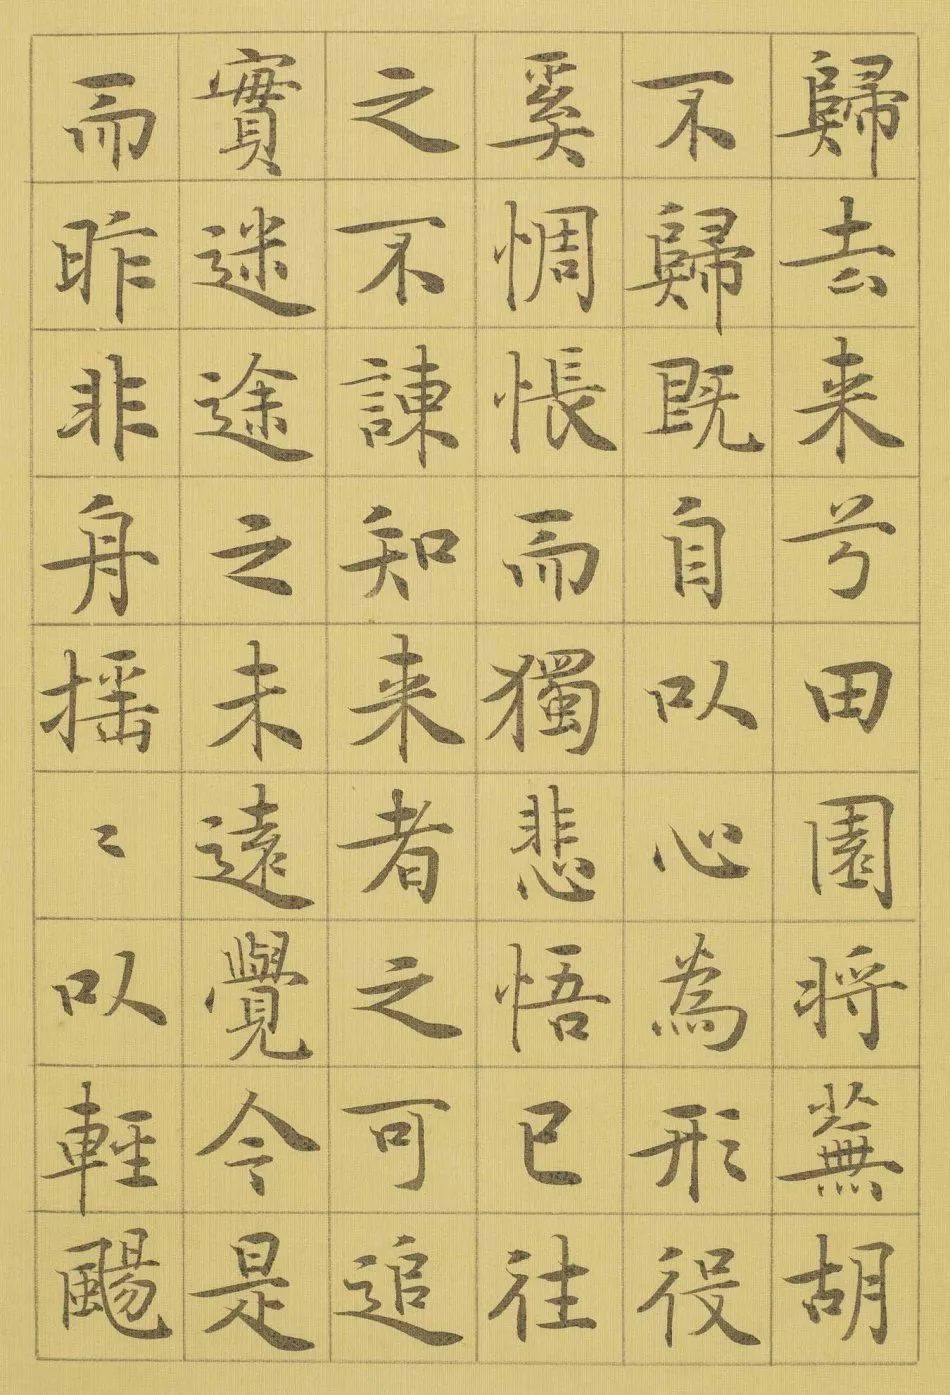 歸去来兮田園将蕪胡
不歸既自以心為形役
奚惆悵而獨悲悟已往
之不諫知来者之可追
實迷途之未遠覺今是
而昨非舟揺〻以輕颺